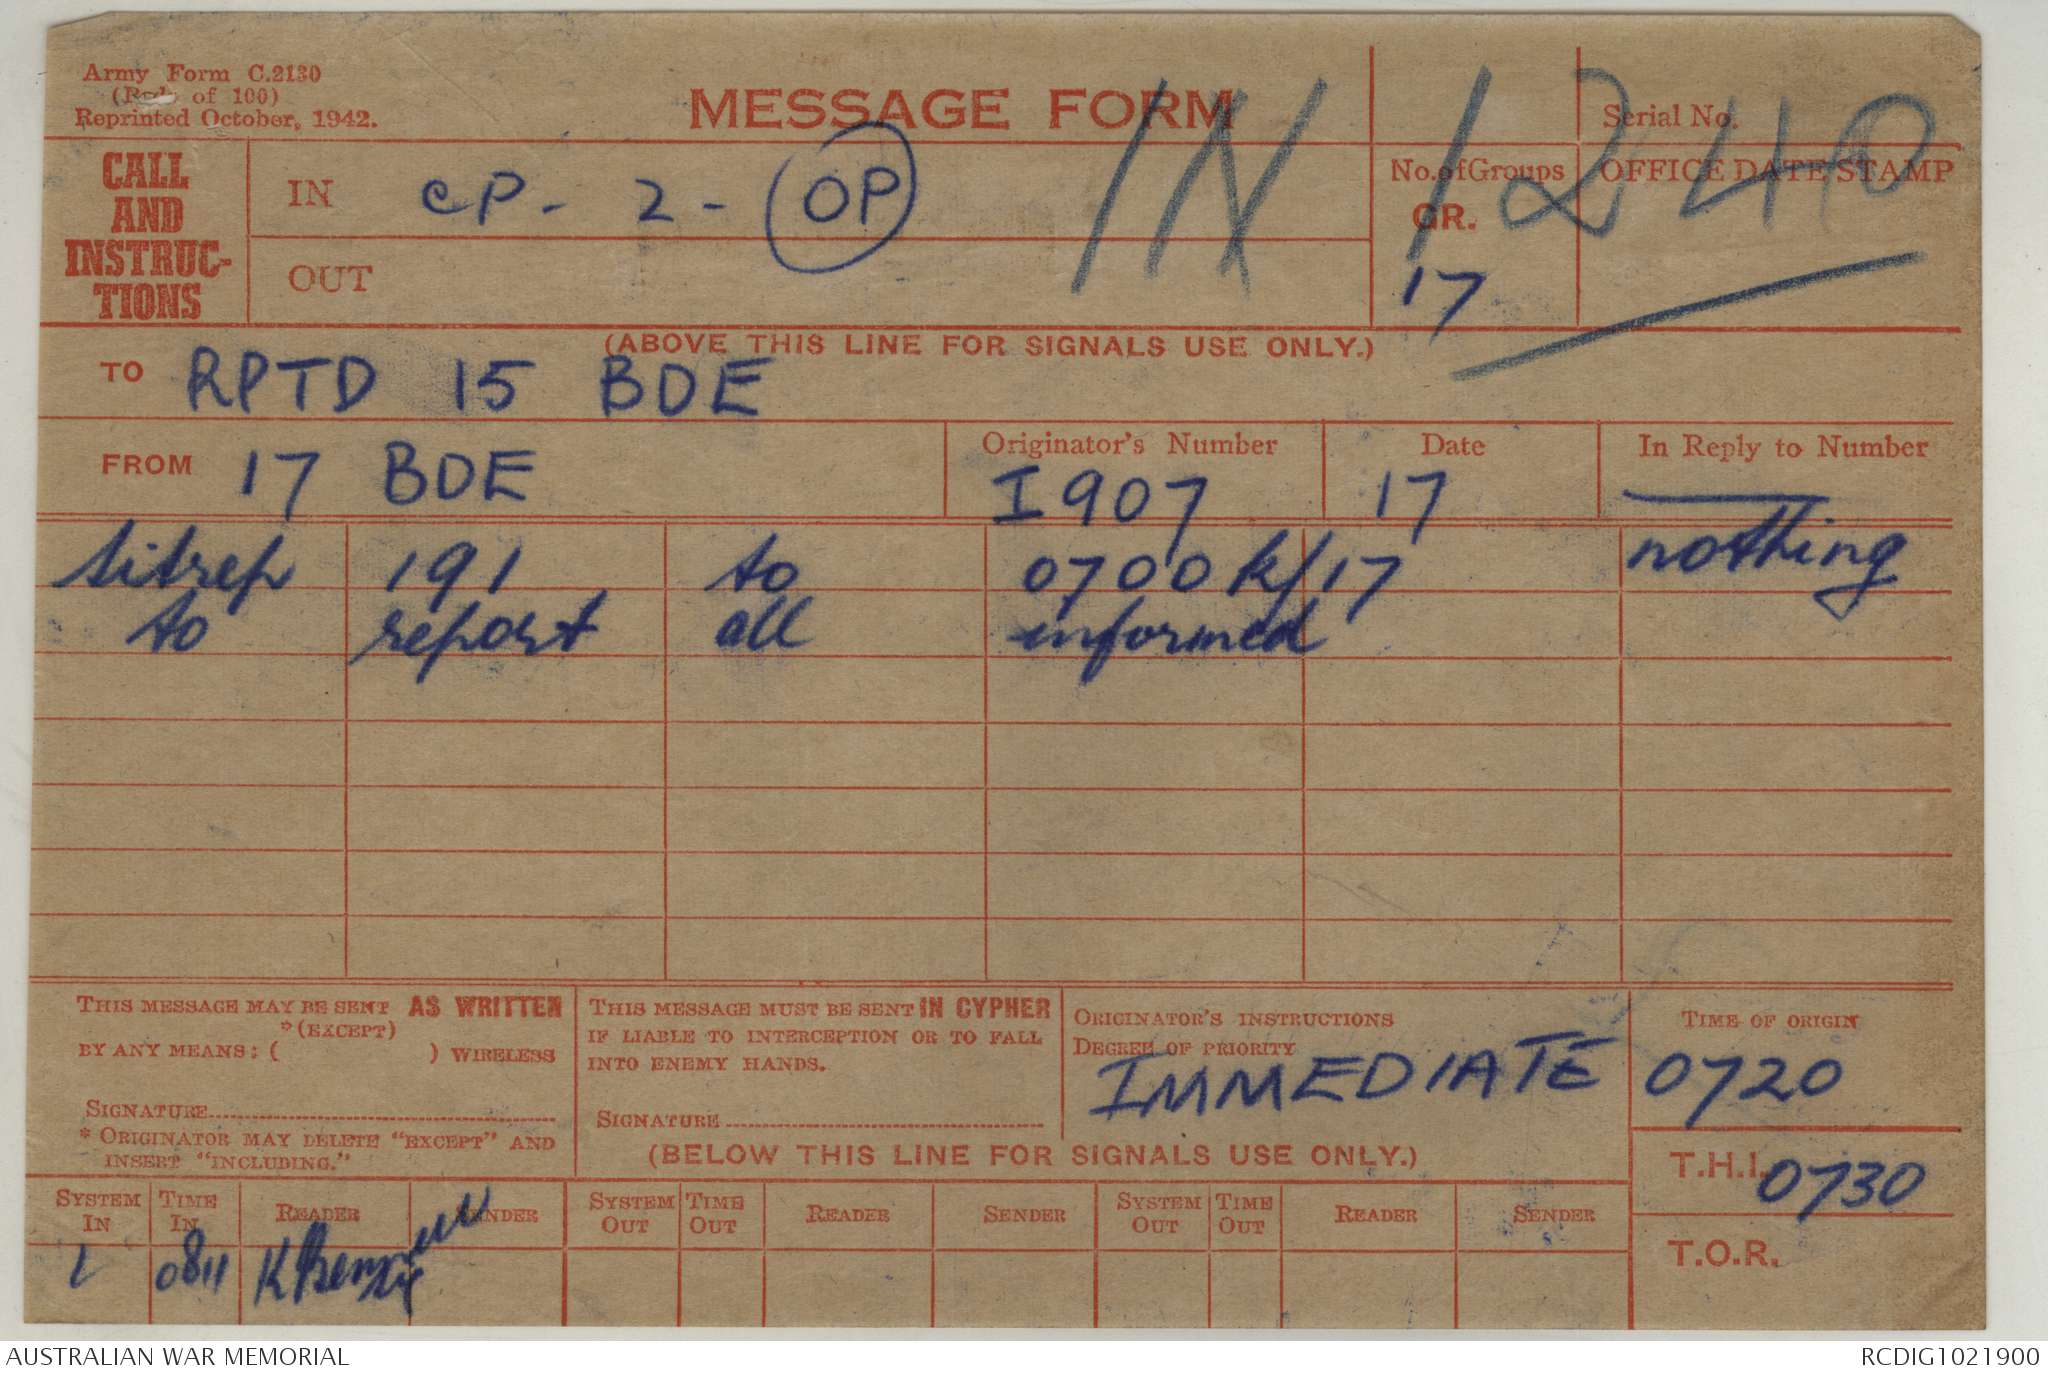 Army Form C.2130
(Pads of 100)
Reprinted October, 1942.
MESSAGE FORM
IN 1240
Serial No.
CALL AND INSTRUC-TIONS
IN CP - 2 - OP
OUT
No. of Groups
GR.
17
OFFICE DATE STAMP
(ABOVE THIS LINE FOR SIGNALS USE ONLY.)
TO RPTD 15 BDE
FROM 17 BDE
Originator's Number
I 907
Date
17
In Reply to Number
sitrep 191 to 0700 K/17 nothing
to report all informed
THIS MESSAGE MAY BE SENT AS WRITTEN
*(EXCEPT)
BY ANY MEANS: ( ) WIRELESS
SIGNATURE
* ORIGINATOR MAY DELETE "EXCEPT" AND
INSERT "INCLUDING."
THIS MESSAGE MUST BE SENT IN CYPHER
IF LIABLE TO INTERCEPTION OR TO FALL
INTO ENEMY HANDS.
SIGNATURE
ORIGINATOR'S INSTRUCTIONS
DEGREE OF PRIORITY
IMMEDIATE
TIME OF ORIGIN
0720
(BELOW THIS LINE FOR SIGNALS USE ONLY.)
T.H.I. 0730
T.O.R.
SYSTEM IN TIME IN READER SENDER SYSTEM OUT TIME OUT READER SENDER SYSTEM OUT TIME OUT READER SENDER
L 0811
AUSTRALIAN WAR MEMORIAL
RCDIG1021900